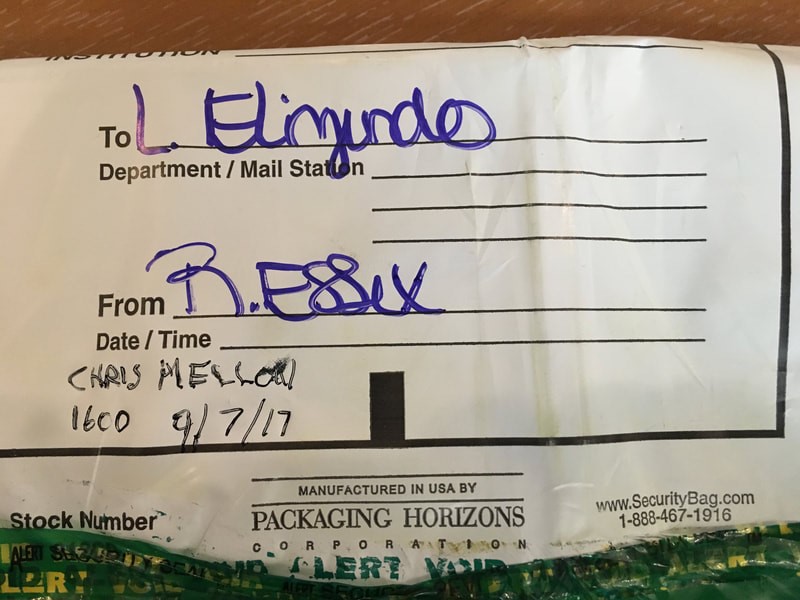 INSTITUTION
To L. Elizondo
Department / Mail Station
From R. Essex
Date / Time
CHRIS MELLON
1600 9/7/17
MANUFACTURED IN USA BY
Stock Number PACKAGING HORIZONS www.SecurityBag.com
CORPORATION 1-888-467-1916
ALERT VOID ALERT VOID